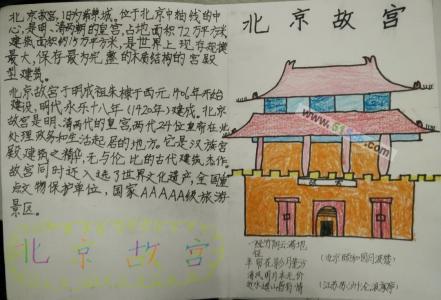 北京故宫，旧称紫禁城。位于北京中轴线的中
心，是明、清两朝的皇宫，占地面积72万平方米，
建筑面积约15万平方米，是世界上现存规模
最大、保存最为完整的木质结构的宫殿
型建筑。
北京故宫于明成祖朱棣于西元1406年开始
建设，明代永乐十八年（1420年）建成。北京
故宫是明、清两代的皇宫，两代24位皇帝在此
处理政务和生活起居的地方。它是汉族宫
殿建筑之精华，无与伦比的古代建筑杰作。
故宫同时还入选了世界文化遗产，全国重
点文物保护单位，国家AAAAA级旅游
景区。
北京故宫
北京故宫
www.51
.com
清风明月本无价